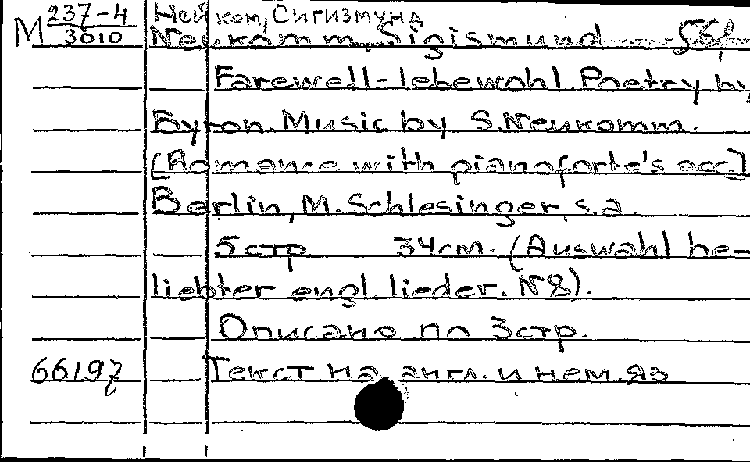 М 237-4/3010 Нейком, Сигизмунд
Neukomm, Sigismund
Farewell-lebewohl. Poetry by
Byron. Music by S. Neukomm.
(Romance with pianoforte's acc.]
Berlin, M. Schlesinger, s.a.
5 стр 34см. (Auswahl be-
liebter engl. lieder. № 8).
Описано по 3 стр.
66197 Текст на англ. и нем. яз